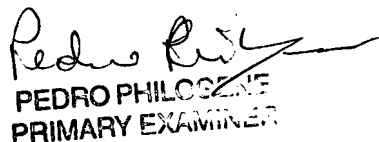 Pedro
PEDRO PHILOGENE
PRIMARY EXAMINER